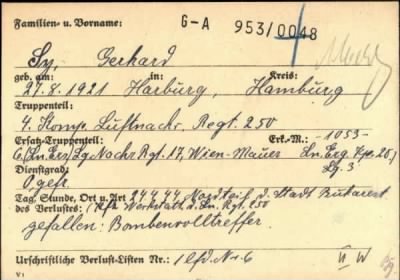 Familien- u. Vorname: G-A 953/0048
Sy, Gerhard
geb. am: in: Kreis:
27.8.1921 Harburg, Hamburg
Truppenteil:
4. Komp. Luftnachr. Regt. 250
Ersatz-Truppenteil: Erk.-M.: -1053-
Ln. Erg. Kp. 20,
Dienstgrad: Lg. 3
O'gefr.
Tag, Stunde, Ort u. Art 24.4.44 Nordteil d. Stadt Bukarest
des Verlustes: Kfz Werkstatt d. Ln. Rgt. 250
gefallen: Bombenvolltreffer.
Urschriftliche Verlust-Listen Nr.: 1 lfd. Nr. 6
V1